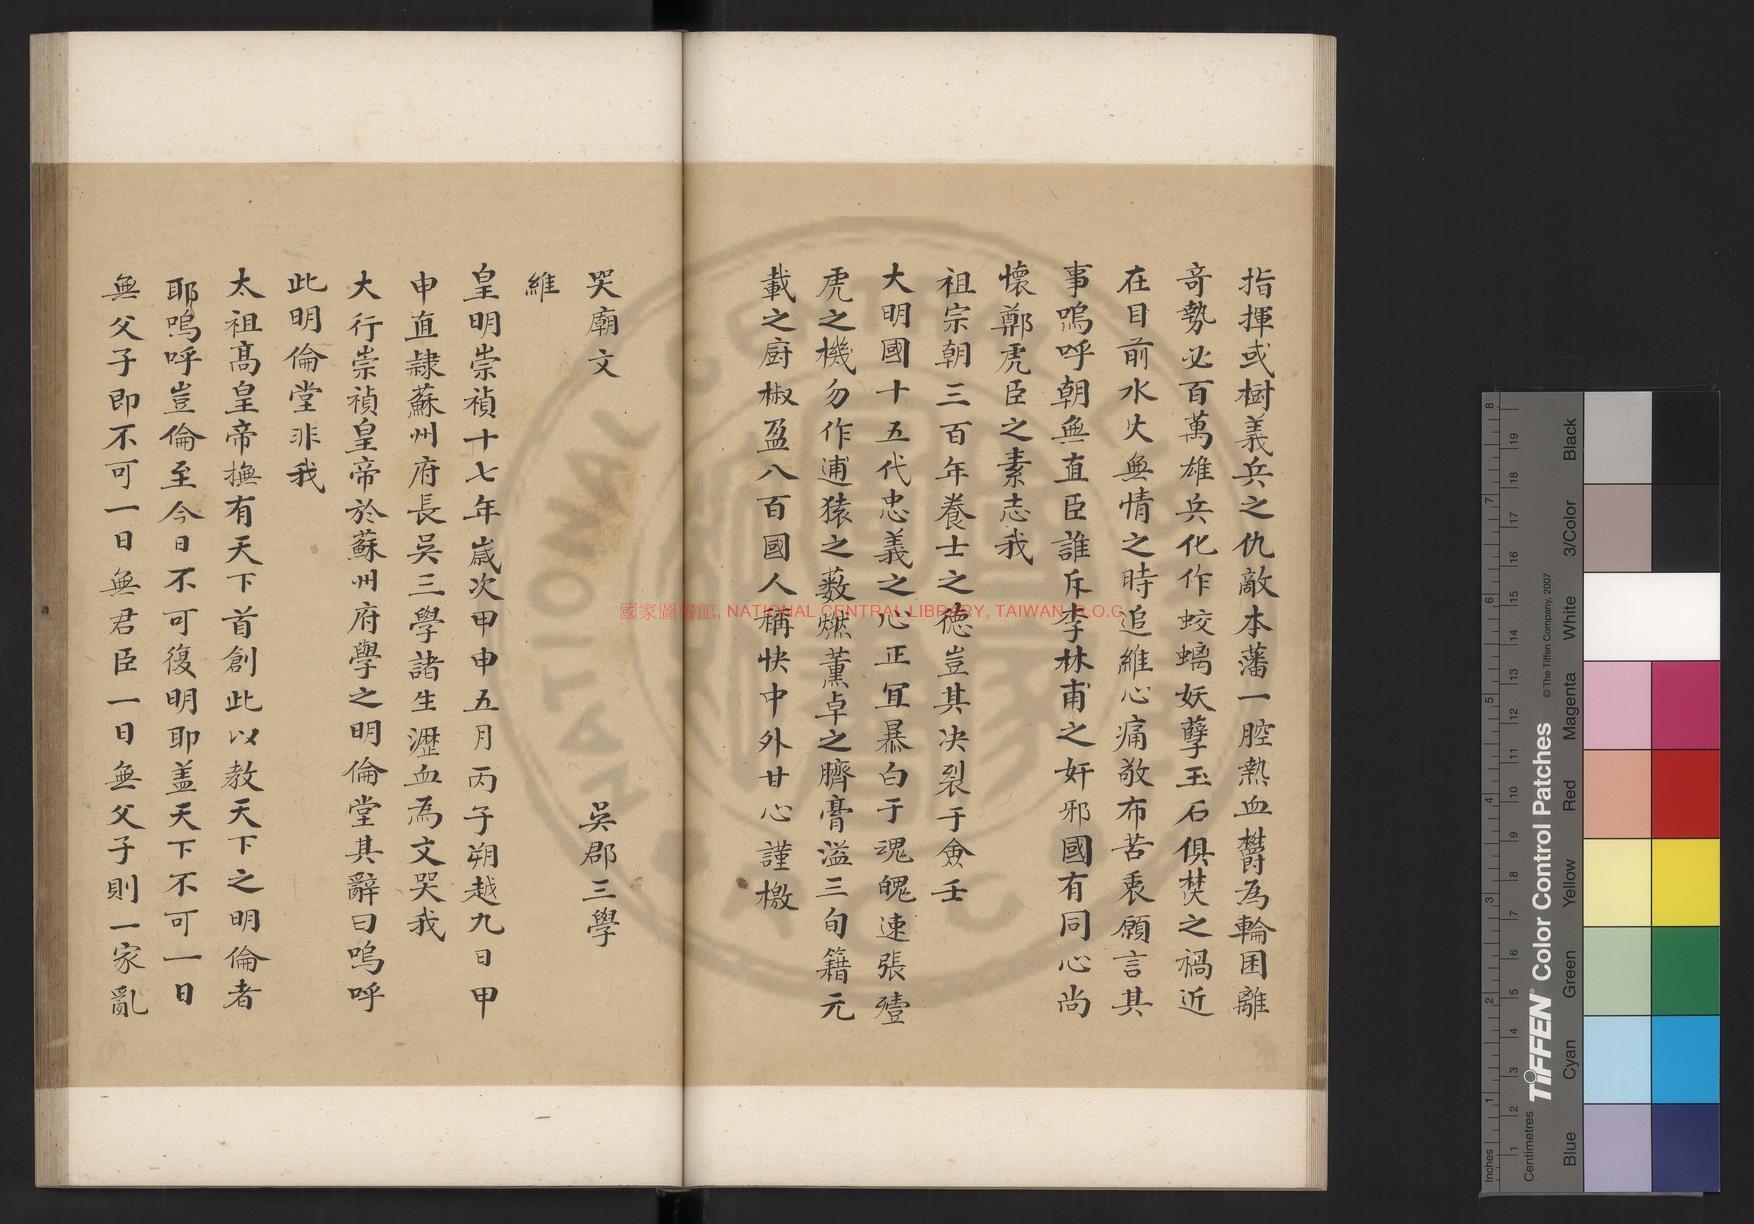 指揮或樹義兵之仇敵本藩一腔熱血欝為輪囷離
竒勢必百萬雄兵化作蛟螭妖孽玉石俱焚之禍近
在目前水火無情之時追維心痛敬布苦衷願言其
事嗚呼朝無直臣誰斥李林甫之奸邪國有同心尚
懷鄭虎臣之素志我
祖宗朝三百年養士之德豈其决裂于僉壬
大明國十五代忠義之心正宜暴白于魂魄速張殪
虎之機勿作逋猿之薮燃董卓之臍膏溢三旬籍元
載之厨椒盈八百國人稱快中外甘心謹檄
哭廟文
吳郡三學
維
皇明崇禎十七年歲次甲申五月丙子朔越九日甲
申直隸蘇州府長吳三學諸生瀝血為文哭我
大行崇禎皇帝於蘇州府學之明倫堂其辭曰嗚呼
此明倫堂非我
太祖髙皇帝撫有天下首創此以教天下之明倫者
耶嗚呼豈倫至今日不可復明耶盖天下不可一日
無父子即不可一日無君臣一日無父子則一家亂
國家圖書館, NATIONAL CENTRAL LIBRARY, TAIWAN, R.O.C
Inches
Centimetres
TIFFEN Color Control Patches
© The Tiffen Company, 2007
Blue
Cyan
Green
Yellow
Red
Magenta
White
3/Color
Black